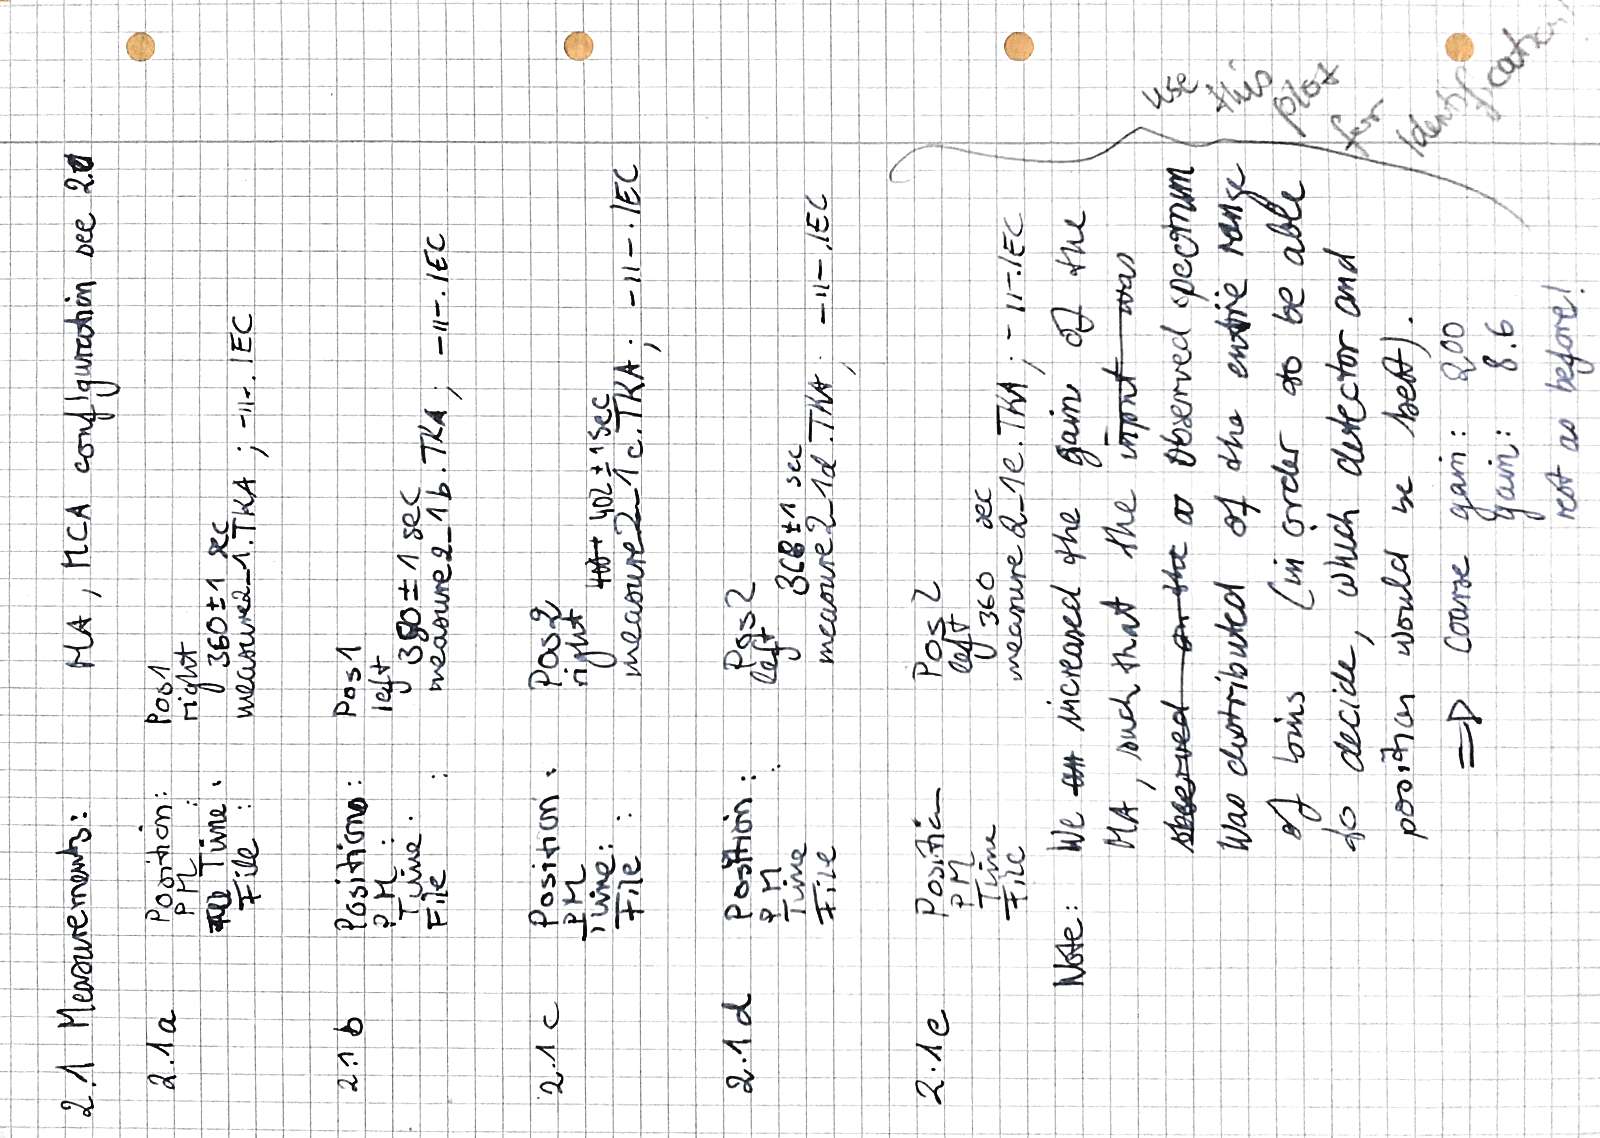 2.1 Measurements: MA, MCA configuration see 2.0
2.1a Position: Pos1
PM: right
Time: 360±1 sec
File: measure2_1.TKA ; -"-.IEC
2.1b Position: Pos1
PM: left
Time: 380±1 sec
File: measure2_1b.TKA ; -"-.IEC
2.1c Position: Pos2
PM right
Time: 402±1 sec
File: measure2_1c.TKA ; -"-.IEC
2.1d Position: Pos2
PM left
Time 368±1 sec
File measure2_1d.TKA ; -"-.IEC
2.1e Position Pos2
PM left
Time 360 sec
File measure2_1e.TKA ; -"-.IEC
Note: We increased the gain of the
MA, such that the input was
observed on the a observed spectrum
was distributed of the entire range
of bins (in order to be able
to decide, which detector and
position would be best).
⇒ Coarse gain: 200
gain: 8.6
rest as before!
use
this
plot
for
Identification!